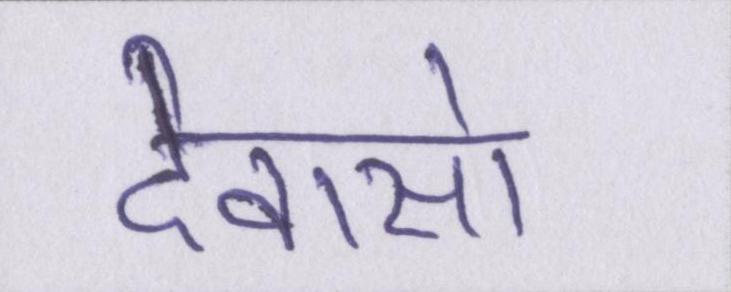 देवासो